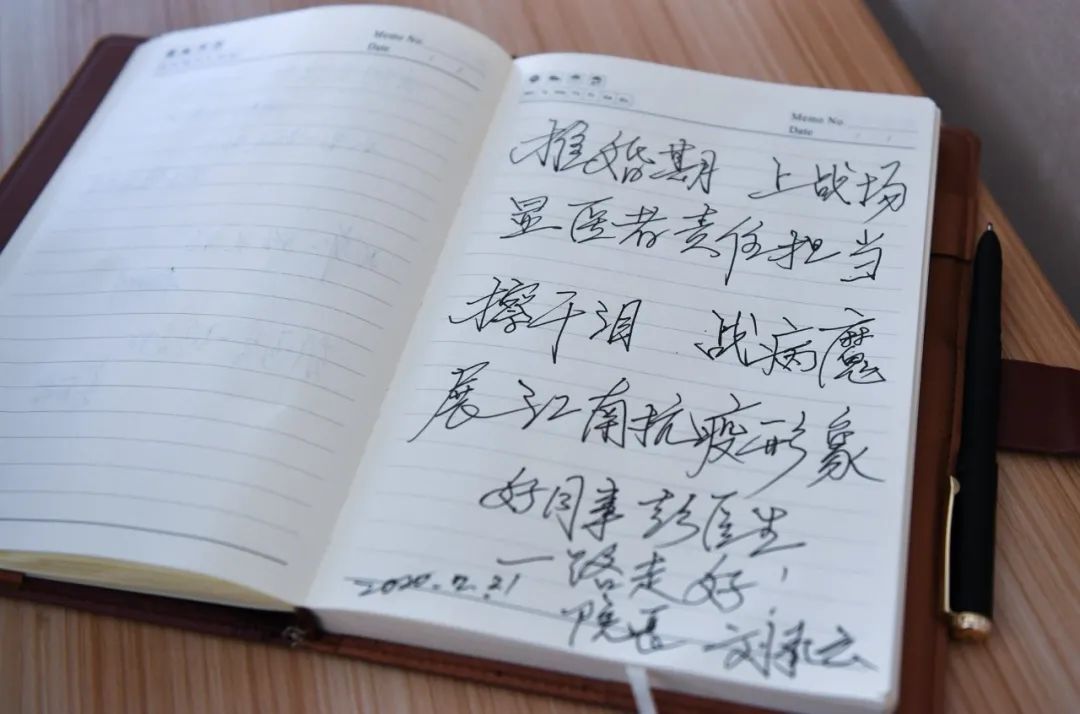 Memo No.
Date
Memo No.
Date
推婚期 上战场
显医者责任担当
擦干泪 战病魔
展江南抗疫形象
好同事彭医生
一路走好!
2020.2.21
院长 刘